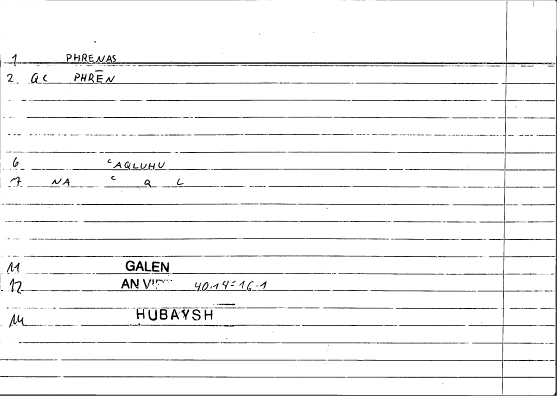 1 PHRENAS
2. GC PHRĒN
6 ʿAQLUHU
7 NA ʿ Q L
11 GALEN
12 AN VIRT 40.14=16.1
14 HUBAYSH